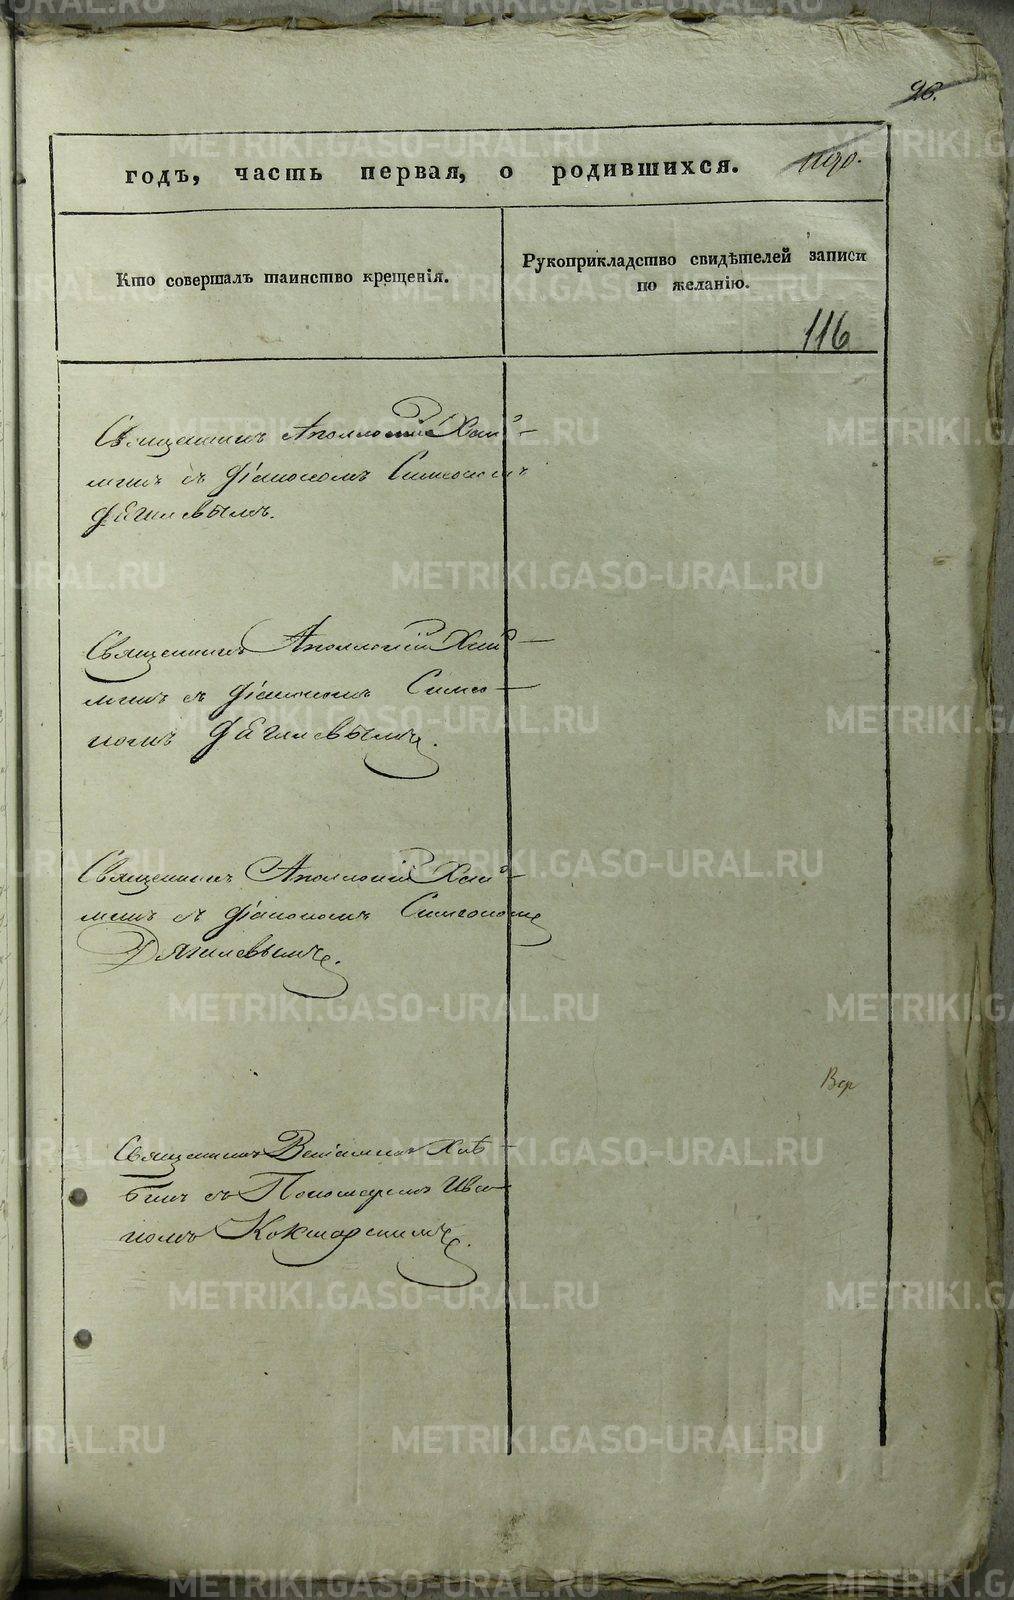 26.
годъ, часть первая, о родившихся.
Кто совершалъ таинство крещенія.
Рукоприкладство свидѣтелей записи
по желанію.
116
Священникъ Аполлоній Хан-
минъ съ діакономъ Симеономъ
Дягилевымъ.
Священникъ Аполлоній Хан-
минъ съ діакономъ Симео-
номъ Дягилевымъ.
Священникъ Аполлоній Хан-
минъ съ діакономъ Симеономъ
Дягилевымъ.
Священникъ Веніаминъ Хлѣ-
бинъ съ Пономаремъ Ива-
номъ Кокшарскимъ.
METRIKI.GASO-URAL.RU